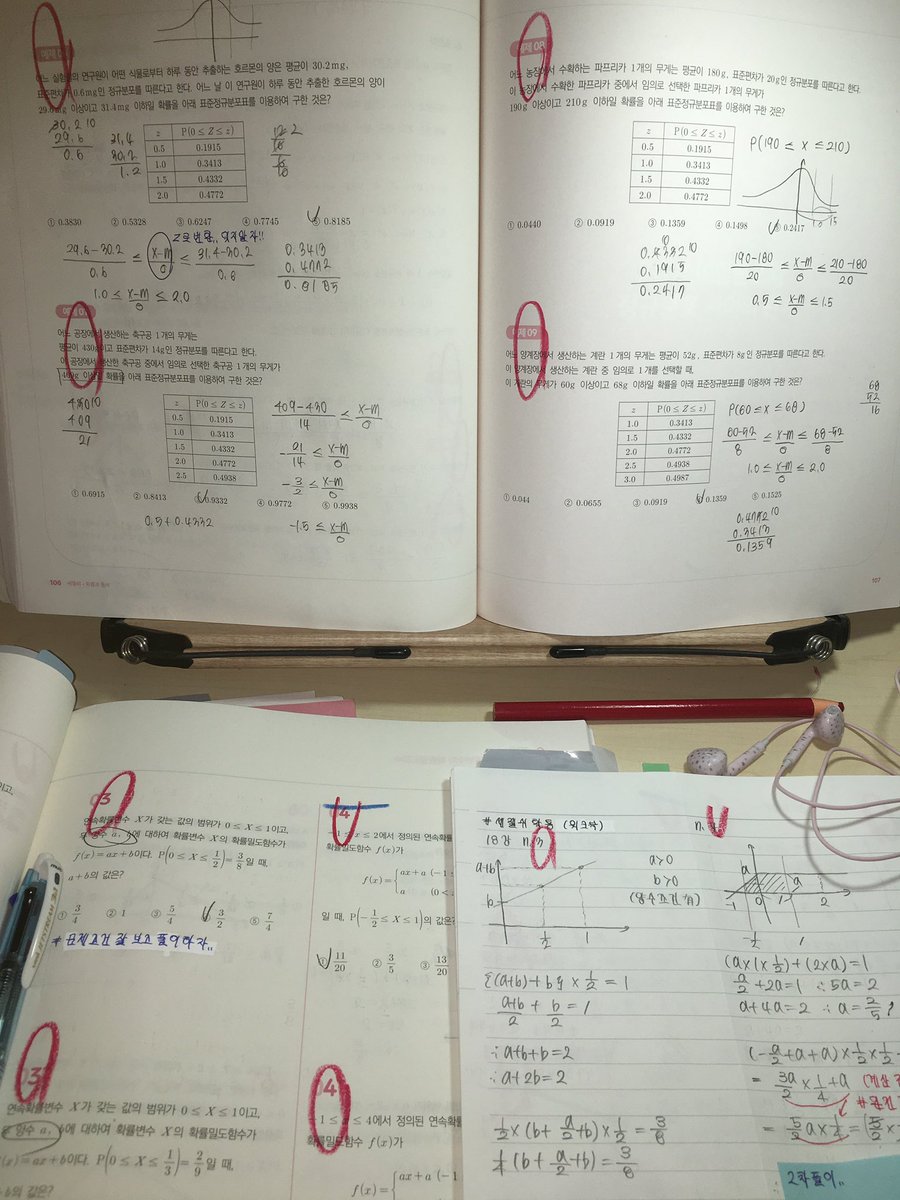 어느 실험실의 연구원이 어떤 식물로부터 하루 동안 추출하는 호르몬의 양은 평균이 30.2mg,
표준편차가 0.6mg인 정규분포를 따른다고 한다. 어느 날 이 연구원이 하루 동안 추출한 호르몬의 양이
29.6mg 이상이고 31.4mg 이하일 확률을 아래 표준정규분포표를 이용하여 구한 것은?
30.2 10
29.6
0.6
31.4
30.2
1.2
z P(0≤Z≤z)
0.5 0.1915
1.0 0.3413
1.5 0.4332
2.0 0.4772
① 0.3830 ② 0.5328 ③ 0.6247 ④ 0.7745 ⑤ 0.8185
29.6-30.2
0.6
≤ X-m ≤
31.4-30.2
1.0 ≤ X-m ≤ 2.0
0.3413
0.4772
0.8185
어느 공장에서 생산하는 축구공 1개의 무게는
평균이 430g이고 표준편차가 14g인 정규분포를 따른다고 한다.
이 공장에서 생산한 축구공 중에서 임의로 선택한 축구공 1개의 무게가
409g 이상일 확률을 아래 표준정규분포표를 이용하여 구한 것은?
430 10
409
21
z P(0≤Z≤z)
0.5 0.1915
1.0 0.3413
1.5 0.4332
2.0 0.4772
2.5 0.4938
409-430
14
≤ X-m
-21/14 ≤ X-m
-3/2 ≤ X-m
-1.5 ≤ X-m
① 0.6915 ② 0.8413 ③ 0.9332 ④ 0.9772 ⑤ 0.9938
0.5+0.4332
106
예제 08
어느 농장에서 수확하는 파프리카 1개의 무게는 평균이 180g, 표준편차가 20g인 정규분포를 따른다고 한다.
이 농장에서 수확한 파프리카 중에서 임의로 선택한 파프리카 1개의 무게가
190g 이상이고 210g 이하일 확률을 아래 표준정규분포표를 이용하여 구한 것은?
z P(0≤Z≤z)
0.5 0.1915
1.0 0.3413
1.5 0.4332
2.0 0.4772
P(190 ≤ X ≤ 210)
① 0.0440 ② 0.0919 ③ 0.1359 ④ 0.1498 ⑤ 0.2417
0.4332
0.1915
0.2417
190-180/20 ≤ X-m/σ ≤ 210-180/20
0.5 ≤ X-m/σ ≤ 1.5
예제 09
어느 양계장에서 생산하는 계란 1개의 무게는 평균이 52g, 표준편차가 8g인 정규분포를 따른다고 한다.
이 양계장에서 생산하는 계란 중 임의로 1개를 선택할 때,
이 계란의 무게가 60g 이상이고 68g 이하일 확률을 아래 표준정규분포표를 이용하여 구한 것은?
68
52
16
z P(0≤Z≤z)
1.0 0.3413
1.5 0.4332
2.0 0.4772
2.5 0.4938
3.0 0.4987
P(60 ≤ X ≤ 68)
60-52/8 ≤ X-m/σ ≤ 68-52/8
1.0 ≤ X-m/σ ≤ 2.0
① 0.044 ② 0.0655 ③ 0.0919 ④ 0.1359 ⑤ 0.1525
0.4772 10
0.3413
0.1359
107
연속확률변수 X가 갖는 값의 범위가 0≤X≤1이고,
두 상수 a, b에 대하여 확률변수 X의 확률밀도함수가
f(x)=ax+b이다. P(0≤X≤1/2)=3/8일 때,
a+b의 값은?
① 3/4 ② 1 ③ 5/4 ④ 3/2 ⑤ 7/4
# 문제조건 잘 보고 풀이하자..
≤x≤2에서 정의된 연속확률
확률밀도함수 f(x)가
f(x)= ax+a (-1
a (0≤
일 때, P(-1/2≤X≤1)의 값은?
① 11/20 ② 3/5 ③ 13/20
연속확률변수 X가 갖는 값의 범위가 0≤X≤1이고,
두 상수 a, b에 대하여 확률변수 X의 확률밀도함수가
f(x)=ax+b이다. P(0≤X≤1/3)=2/9일 때,
+b의 값은?
1≤x≤4에서 정의된 연속확률
확률밀도함수 f(x)가
f(x)= ax+a (-1
(워크북)
18강
a+b
b
1/2
1
a>0
b>0
{(a+b)+b} × 1/2 = 1
a+b/2 + b/2 = 1
∴ a+b+b=2
∴ a+2b=2
1/2×(b+a/2+b)×1/2=3/8
1/4(b+a/2+b)=3/8
a
-1 0 1 2
-1/2
(a×1×1/2)+(2×a)=1
a/2+2a=1 ∴5a=2
a+4a=2 ∴a=2/5
(-a/2+a+a)×1/2×1/2
= 3a/2×1/4+a
= 5/2a×1/4
2차풀이..